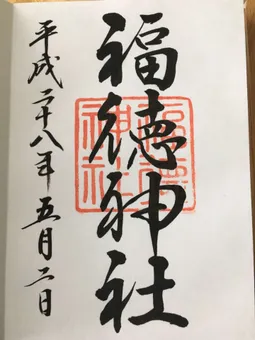 福徳神社
平成二十八年五月二日
福徳神社